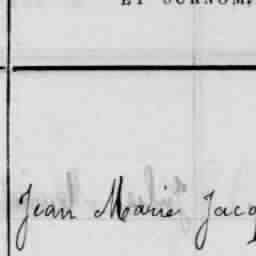 ET SURNOM.
Jean Marie Jacq